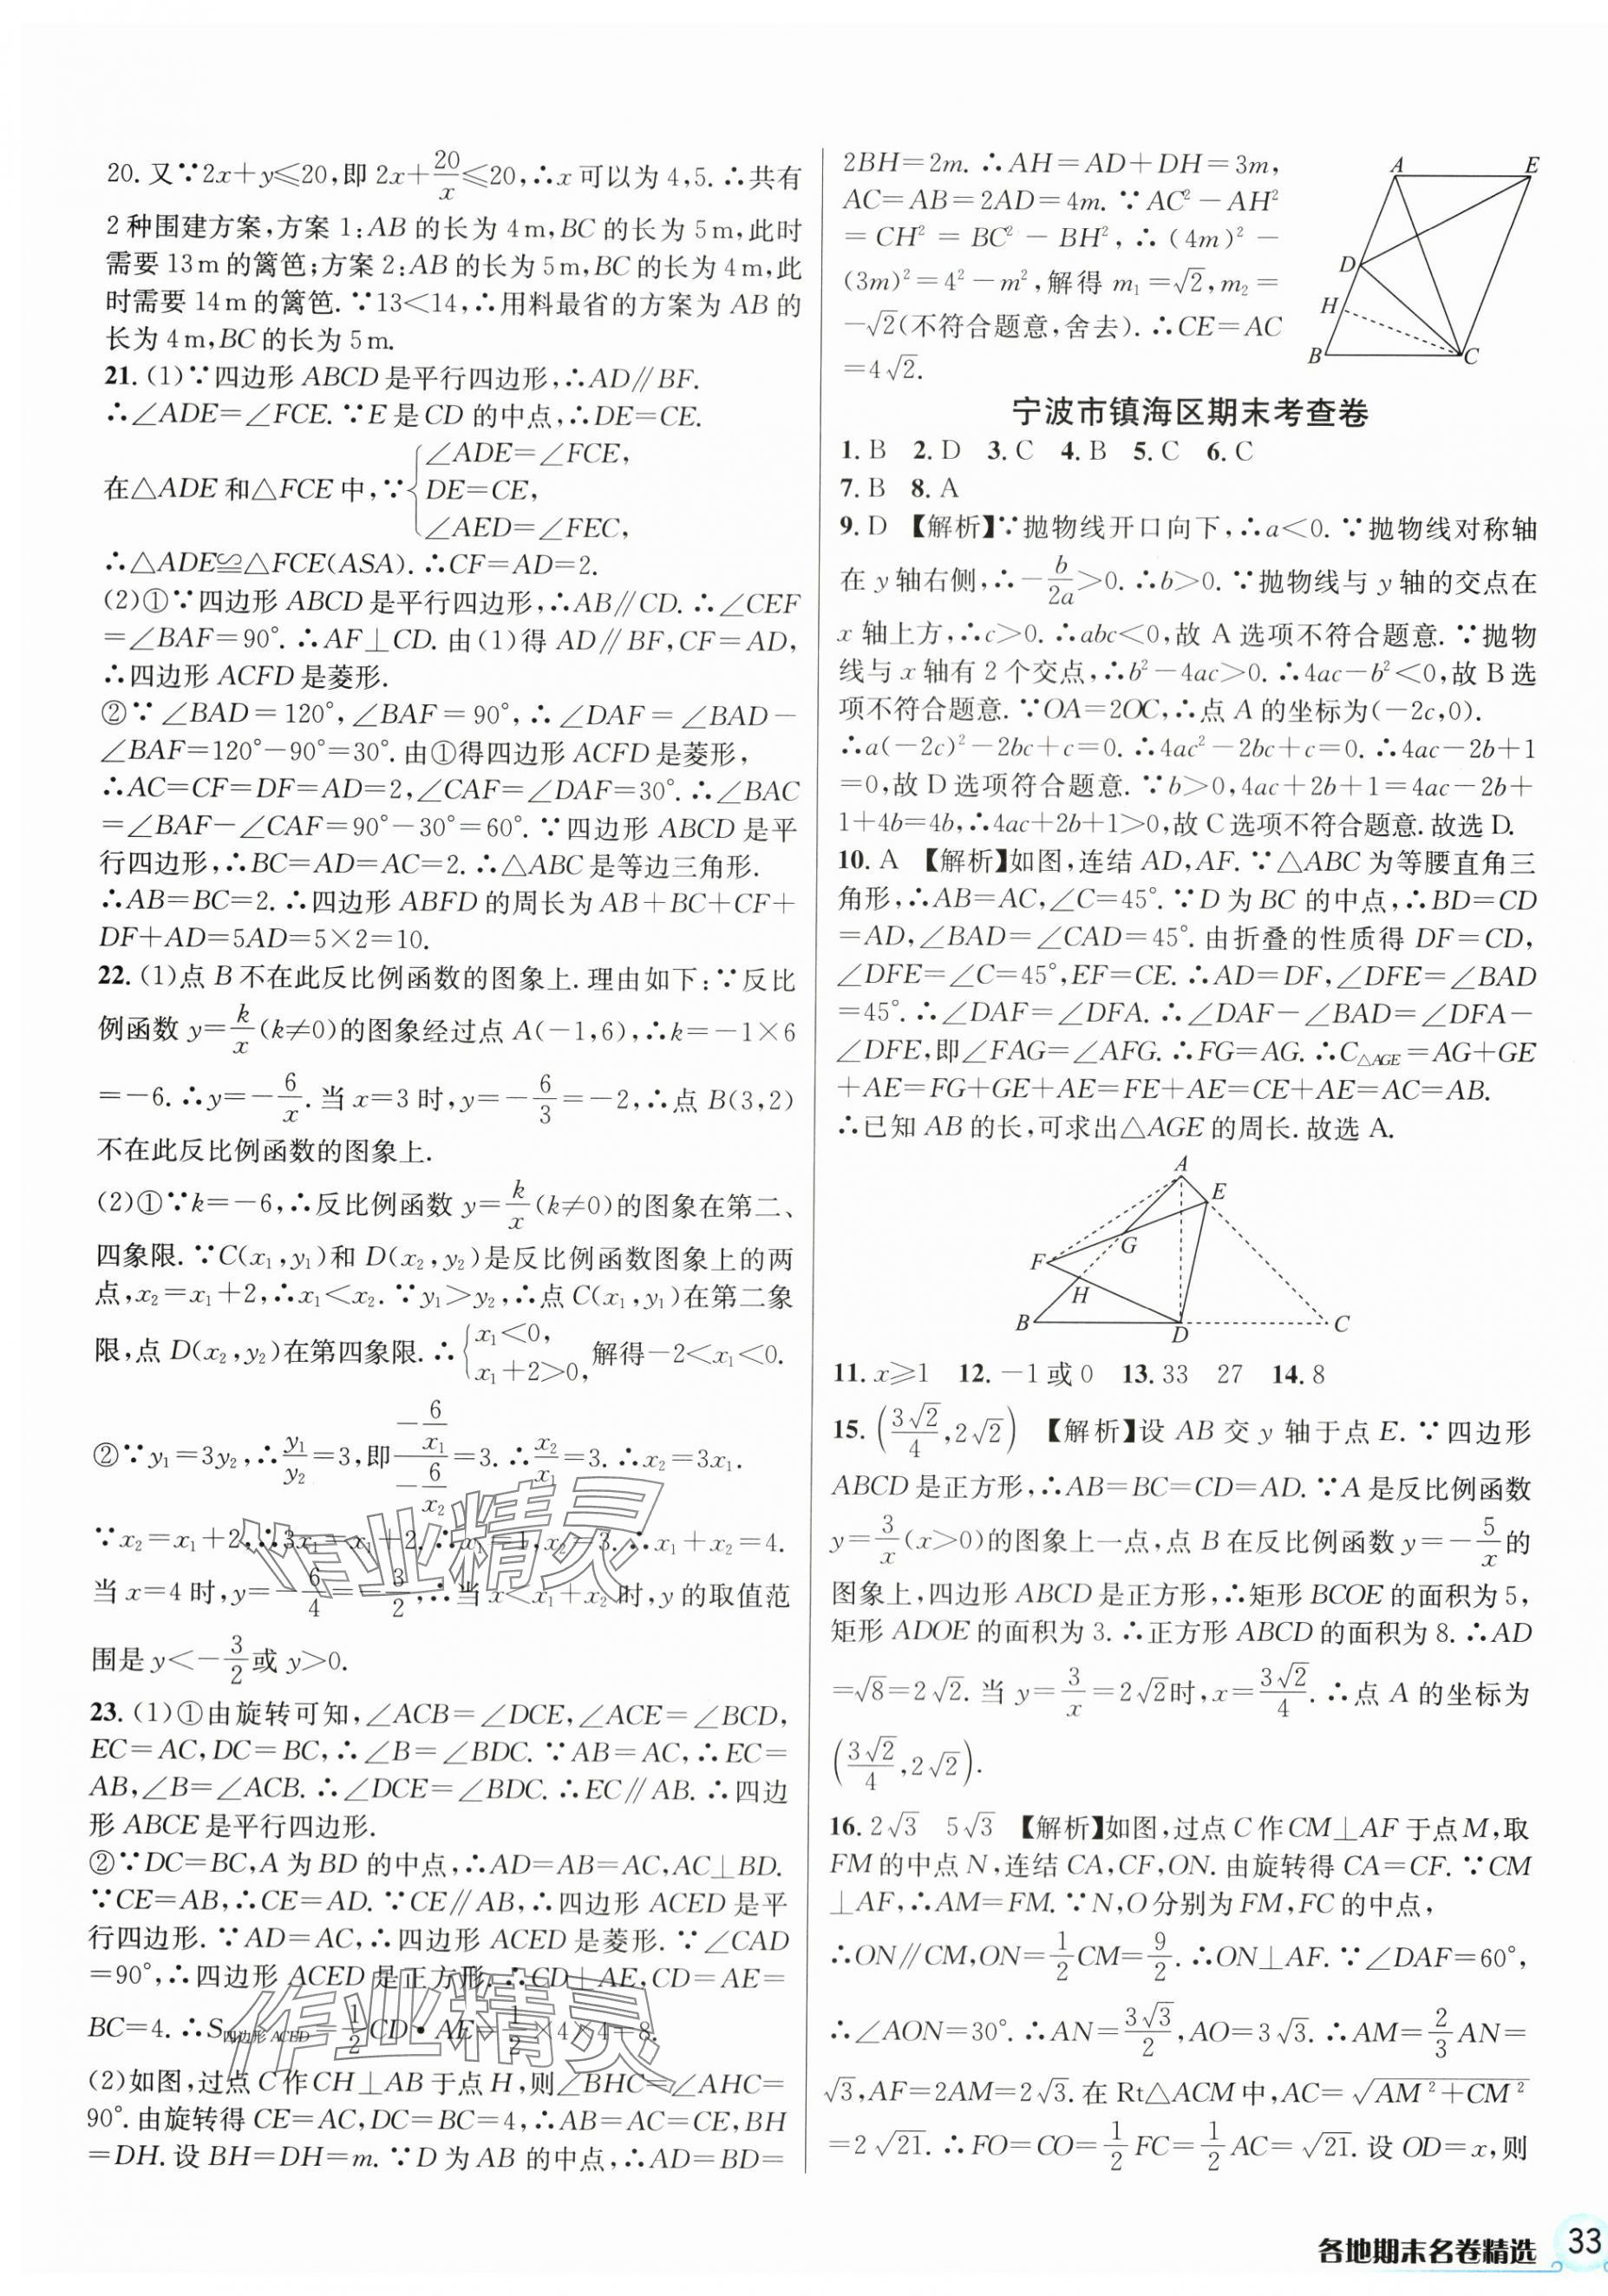 20. 又∵2x+y≤20,即 2x+20/x≤20,∴x 可以为 4,5. ∴共有
2 种围建方案,方案 1:AB 的长为 4 m,BC 的长为 5 m,此时
需要 13 m 的篱笆;方案 2:AB 的长为 5 m,BC 的长为 4 m,此
时需要 14 m 的篱笆. ∵13<14,∴用料最省的方案为 AB 的
长为 4 m,BC 的长为 5 m.
21. (1)∵四边形 ABCD 是平行四边形,∴AD∥BF.
∴∠ADE=∠FCE. ∵E 是 CD 的中点,∴DE=CE.
在△ADE 和△FCE 中,∵{∠ADE=∠FCE,
DE=CE,
∠AED=∠FEC,
∴△ADE≌△FCE(ASA). ∴CF=AD=2.
(2)①∵四边形 ABCD 是平行四边形,∴AB∥CD. ∴∠CEF
=∠BAF=90°. ∴AF⊥CD. 由(1)得 AD∥BF,CF=AD,
∴四边形 ACFD 是菱形.
②∵∠BAD=120°,∠BAF=90°,∴∠DAF=∠BAD-
∠BAF=120°-90°=30°. 由①得四边形 ACFD 是菱形,
∴AC=CF=DF=AD=2,∠CAF=∠DAF=30°. ∴∠BAC
=∠BAF-∠CAF=90°-30°=60°. ∵四边形 ABCD 是平
行四边形,∴BC=AD=AC=2. ∴△ABC 是等边三角形.
∴AB=BC=2. ∴四边形 ABFD 的周长为 AB+BC+CF+
DF+AD=5AD=5×2=10.
22. (1)点 B 不在此反比例函数的图象上. 理由如下:∵反比
例函数 y=k/x(k≠0)的图象经过点 A(-1,6),∴k=-1×6
=-6. ∴y=-6/x. 当 x=3 时,y=-6/3=-2,∴点 B(3,2)
不在此反比例函数的图象上.
(2)①∵k=-6,∴反比例函数 y=k/x(k≠0)的图象在第二、
四象限. ∵C(x₁,y₁)和 D(x₂,y₂)是反比例函数图象上的两
点,x₂=x₁+2,∴x₁<x₂. ∵y₁>y₂,∴点 C(x₁,y₁)在第二象
限,点 D(x₂,y₂)在第四象限. ∴{x₁<0, x₁+2>0, 解得-2<x₁<0.
②∵y₁=3y₂,∴y₁/y₂=3,即(-6/x₁)/(-6/x₂)=3. ∴x₂/x₁=3. ∴x₂=3x₁.
∵x₂=x₁+2,∴3x₁=x₁+2. ∴x₁=1,x₂=3. ∴x₁+x₂=4.
当 x=4 时,y=-6/4=-3/2,∴当 x<x₁+x₂时,y 的取值范
围是 y<-3/2或 y>0.
23. (1)①由旋转可知,∠ACB=∠DCE,∠ACE=∠BCD,
EC=AC,DC=BC,∴∠B=∠BDC. ∵AB=AC,∴EC=
AB,∠B=∠ACB. ∴∠DCE=∠BDC. ∴EC∥AB. ∴四边
形 ABCE 是平行四边形.
②∵DC=BC,A 为 BD 的中点,∴AD=AB=AC,AC⊥BD.
∵CE=AB,∴CE=AD. ∵CE∥AB,∴四边形 ACED 是平
行四边形. ∵AD=AC,∴四边形 ACED 是菱形. ∵∠CAD
=90°,∴四边形 ACED 是正方形. ∴CD⊥AE,CD=AE=
BC=4. ∴S四边形ACED=1/2CD·AE=1/2×4×4=8.
(2)如图,过点 C 作 CH⊥AB 于点 H,则∠BHC=∠AHC=
90°. 由旋转得 CE=AC,DC=BC=4,∴AB=AC=CE,BH
=DH. 设 BH=DH=m. ∵D 为 AB 的中点,∴AD=BD=
2BH=2m. ∴AH=AD+DH=3m,
AC=AB=2AD=4m. ∵AC²-AH²
=CH²=BC²-BH²,∴(4m)²-
(3m)²=4²-m²,解得 m₁=√2,m₂=
-√2(不符合题意,舍去). ∴CE=AC
=4√2.
A
E
D
H
B
C
宁波市镇海区期末考查卷
1. B 2. D 3. C 4. B 5. C 6. C
7. B 8. A
9. D 【解析】∵抛物线开口向下,∴a<0. ∵抛物线对称轴
在 y 轴右侧,∴-b/2a>0. ∴b>0. ∵抛物线与 y 轴的交点在
x 轴上方,∴c>0. ∴abc<0,故 A 选项不符合题意. ∵抛物
线与 x 轴有 2 个交点,∴b²-4ac>0. ∴4ac-b²<0,故 B 选
项不符合题意. ∵OA=2OC,∴点 A 的坐标为(-2c,0).
∴a(-2c)²-2bc+c=0. ∴4ac²-2bc+c=0. ∴4ac-2b+1
=0,故 D 选项符合题意. ∵b>0,4ac+2b+1=4ac-2b+
1+4b=4b,∴4ac+2b+1>0,故 C 选项不符合题意. 故选 D.
10. A 【解析】如图,连结 AD,AF. ∵△ABC 为等腰直角三
角形,∴AB=AC,∠C=45°. ∵D 为 BC 的中点,∴BD=CD
=AD,∠BAD=∠CAD=45°. 由折叠的性质得 DF=CD,
∠DFE=∠C=45°,EF=CE. ∴AD=DF,∠DFE=∠BAD
=45°. ∴∠DAF=∠DFA. ∴∠DAF-∠BAD=∠DFA-
∠DFE,即∠FAG=∠AFG. ∴FG=AG. ∴C△AGE=AG+GE
+AE=FG+GE+AE=FE+AE=CE+AE=AC=AB.
∴已知 AB 的长,可求出△AGE 的周长. 故选 A.
A
E
G
F
H
B
D
C
11. x≥1 12. -1 或 0 13. 33 27 14. 8
15. (3√2/4,2√2) 【解析】设 AB 交 y 轴于点 E. ∵四边形
ABCD 是正方形,∴AB=BC=CD=AD. ∵A 是反比例函数
y=3/x(x>0)的图象上一点,点 B 在反比例函数 y=-5/x的
图象上,四边形 ABCD 是正方形,∴矩形 BCOE 的面积为 5,
矩形 ADOE 的面积为 3. ∴正方形 ABCD 的面积为 8. ∴AD
=√8=2√2. 当 y=3/x=2√2时,x=3√2/4. ∴点 A 的坐标为
(3√2/4,2√2).
16. 2√3 5√3 【解析】如图,过点 C 作 CM⊥AF 于点 M,取
FM 的中点 N,连结 CA,CF,ON. 由旋转得 CA=CF. ∵CM
⊥AF,∴AM=FM. ∵N,O 分别为 FM,FC 的中点,
∴ON∥CM,ON=1/2CM=9/2. ∴ON⊥AF. ∵∠DAF=60°,
∴∠AON=30°. ∴AN=3√3/2,AO=3√3. ∴AM=2/3AN=
√3,AF=2AM=2√3. 在 Rt△ACM 中,AC=√(AM²+CM²)
=2√21. ∴FO=CO=1/2FC=1/2AC=√21. 设 OD=x,则
作业精灵
作业精灵
各地期末名卷精选 33